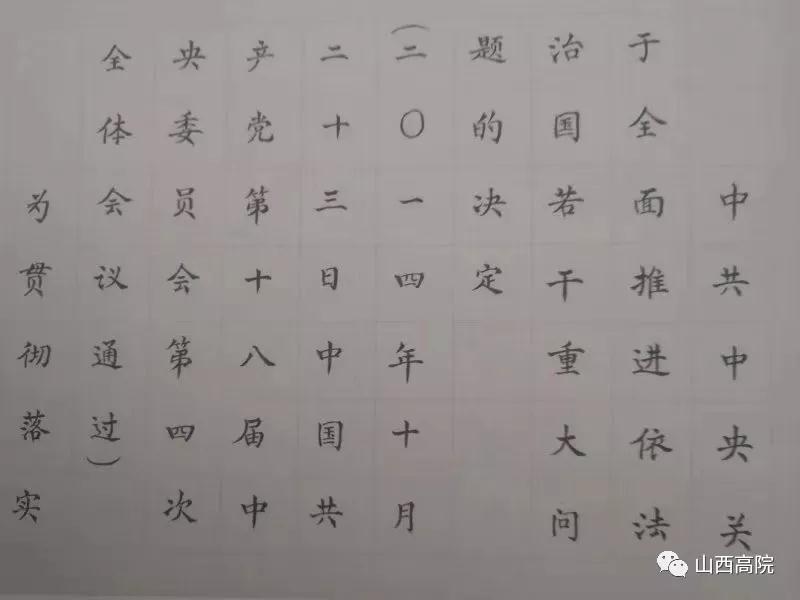 中共中央关
于全面推进依法
治国若干重大问
题的决定
（二〇一四年十月
二十三日中国共
产党第十八届中
央委员会第四次
全体会议通过）
为贯彻落实
山西高院